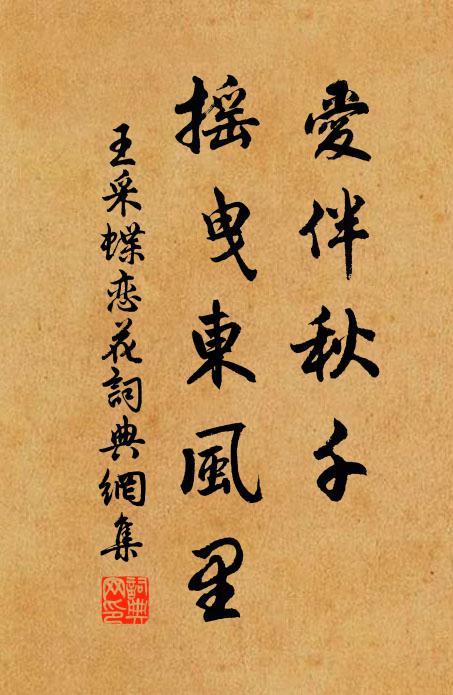 愛伴秋千
摇曳東風里
王采蝶恋花詞典網集
詞典网印